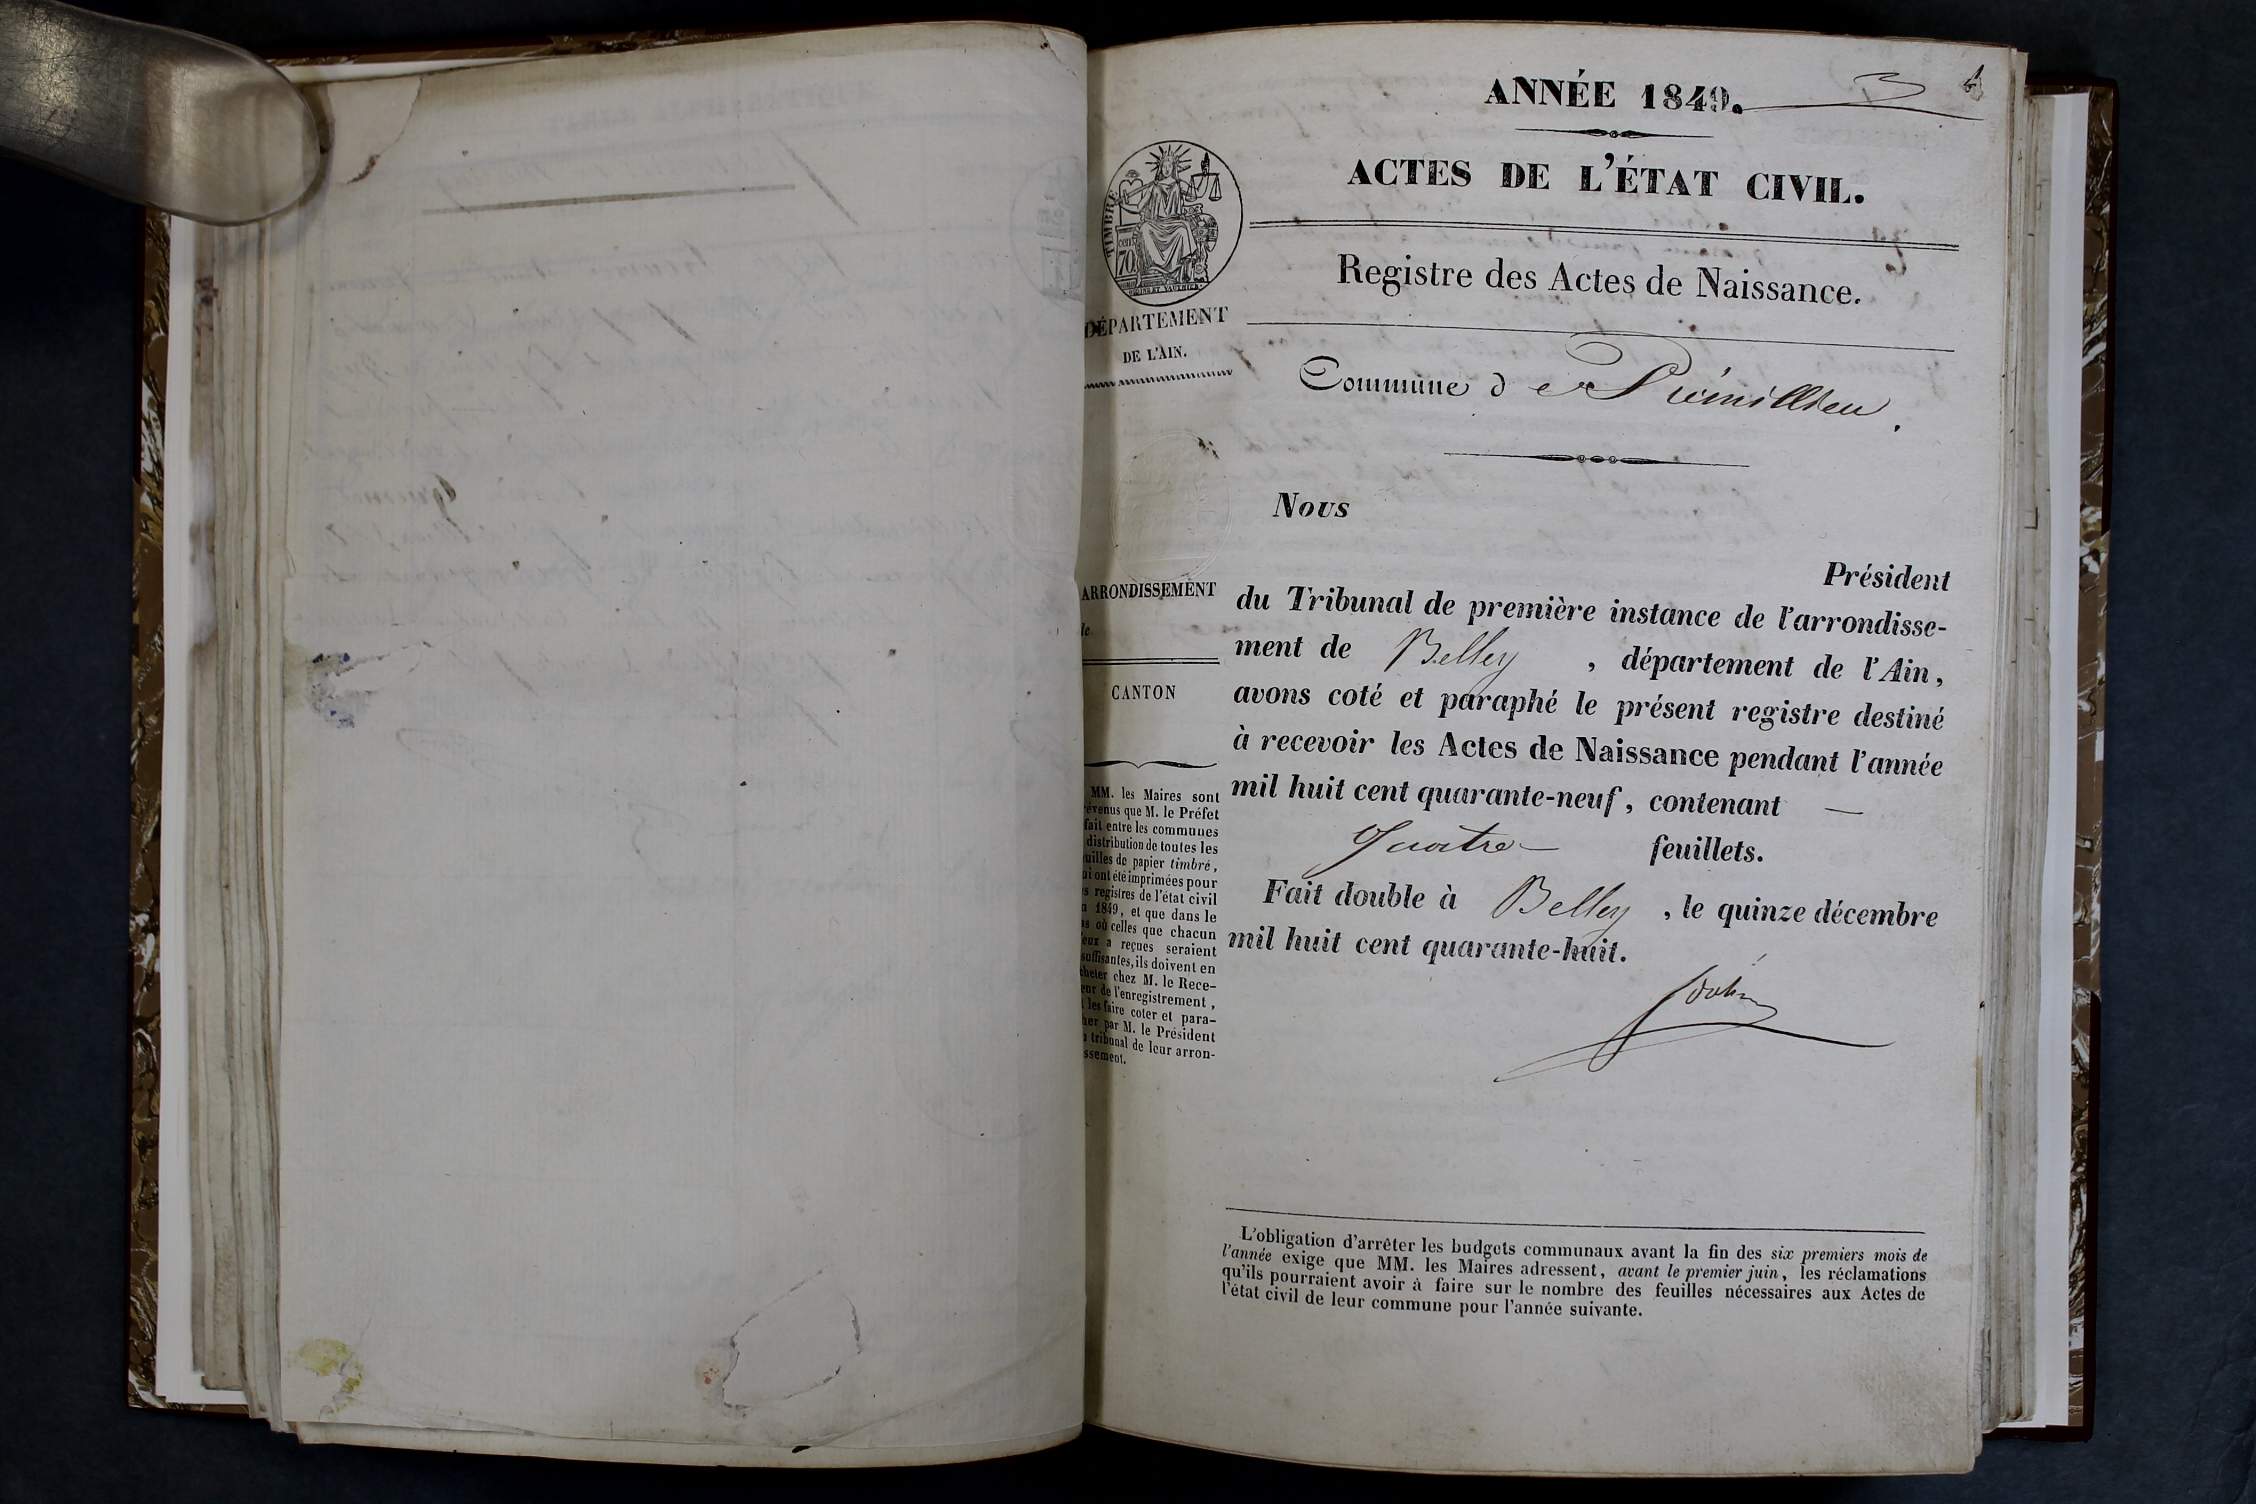 ANNÉE 1849.
ACTES DE L'ÉTAT CIVIL.
TIMBRE
cent.
70
Registre des Actes de Naissance.
DÉPARTEMENT
DE L'AIN.
Commune de Prémillieu.
Nous
Président
du Tribunal de première instance de l'arrondisse-
ment de Belley, département de l'Ain,
avons coté et paraphé le présent registre destiné
à recevoir les Actes de Naissance pendant l'année
mil huit cent quarante-neuf, contenant —
quatre — feuillets.
Fait double à Belley, le quinze décembre
mil huit cent quarante-huit.
ARRONDISSEMENT
de
CANTON
MM. les Maires sont
révenus que M. le Préfet
fait entre les communes
distribution de toutes les
uilles de papier timbré,
ui ont été imprimées pour
s registres de l'état civil
n 1849, et que dans le
as où celles que chacun
'eux a reçues seraient
suffisantes, ils doivent en
cheter chez M. le Rece-
eur de l'enregistrement,
t les faire coter et para-
her par M. le Président
u tribunal de leur arron-
ssement.
L'obligation d'arrêter les budgets communaux avant la fin des six premiers mois de
l'année exige que MM. les Maires adressent, avant le premier juin, les réclamations
qu'ils pourraient avoir à faire sur le nombre des feuilles nécessaires aux Actes de
l'état civil de leur commune pour l'année suivante.